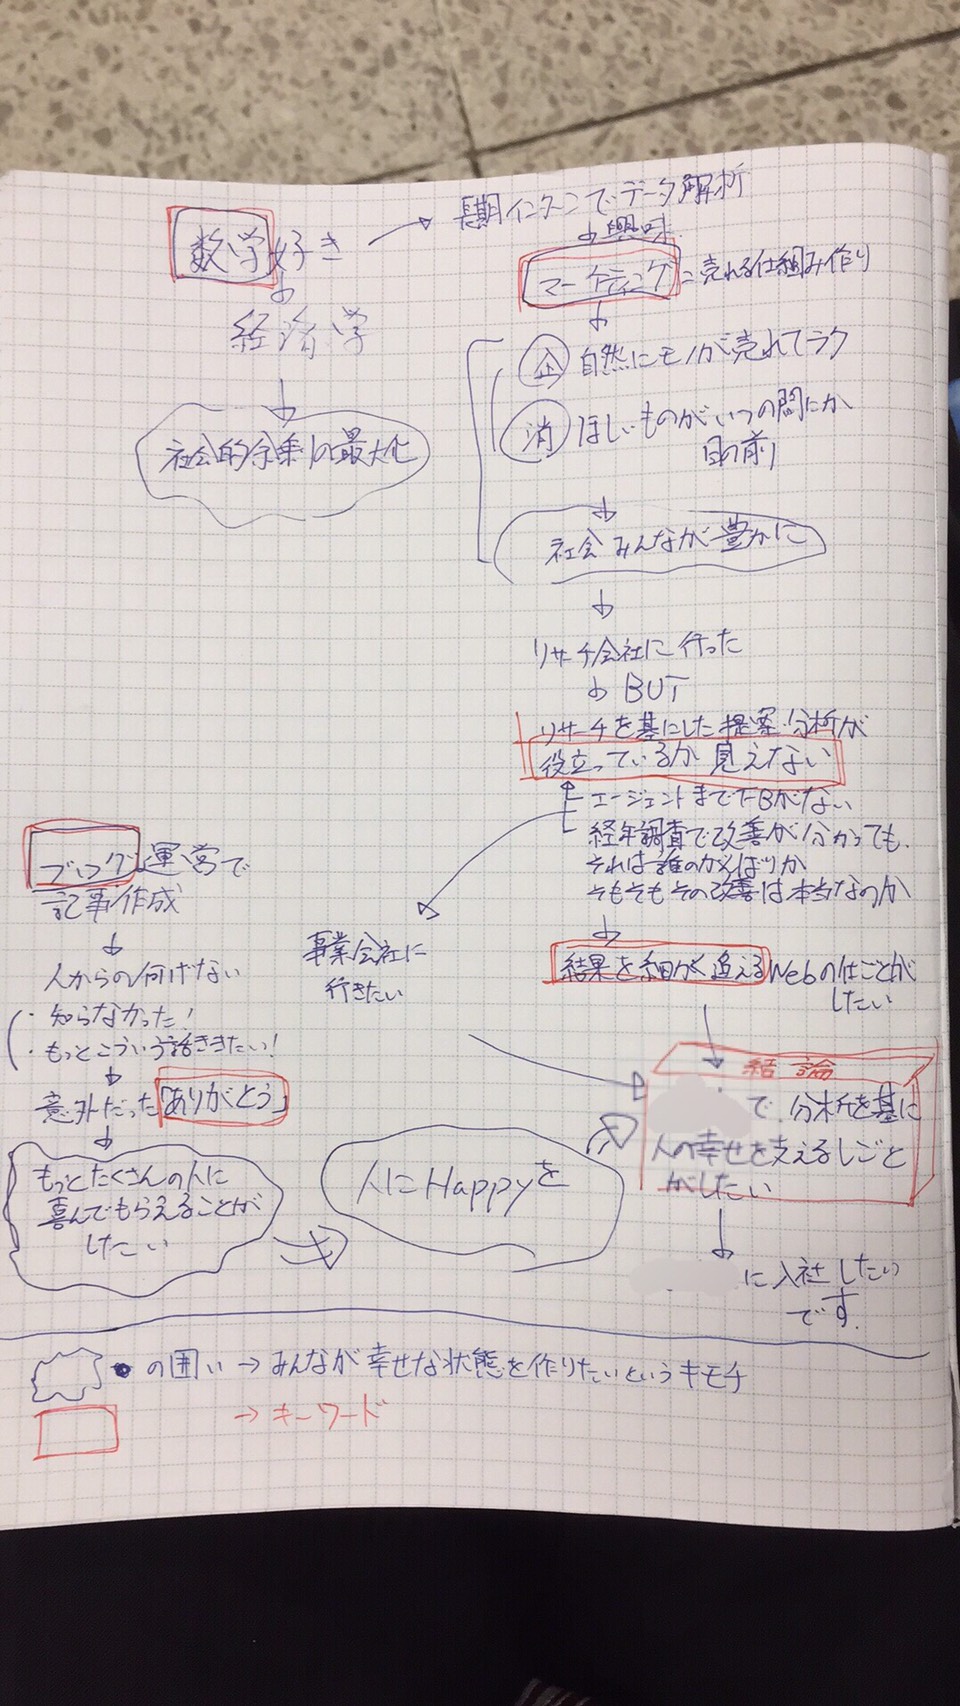 数学好き
経済学
社会的余剰の最大化
長期インターンでデータ解析
興味
マーケティング=売れる仕組み作り
企 自然にモノが売れてラク
消 ほしいものがいつの間にか
目の前
社会みんなが豊かに
リサーチ会社に行った
BUT
リサーチを基にした提案・分析が
役立っているか見えない
エージェントまでFBがない
経年調査で改善が分かっても、
それは誰のがんばりか
そもそもその改善は本当なのか
結果を細かく追えるWebの仕ごとが
したい
事業会社に
行きたい
ブログ運営で
記事作成
人からの何げない
・知らなかった!
・もっとこういう話ききたい!
意外だった「ありがとう」
もっとたくさんの人に
喜んでもらえることが
したい
人にHappyを
結論
で、分析を基に
人の幸せを支えるしごと
がしたい
に入社したい
です。
の囲い→みんなが幸せな状態を作りたいというキモチ
→キーワード